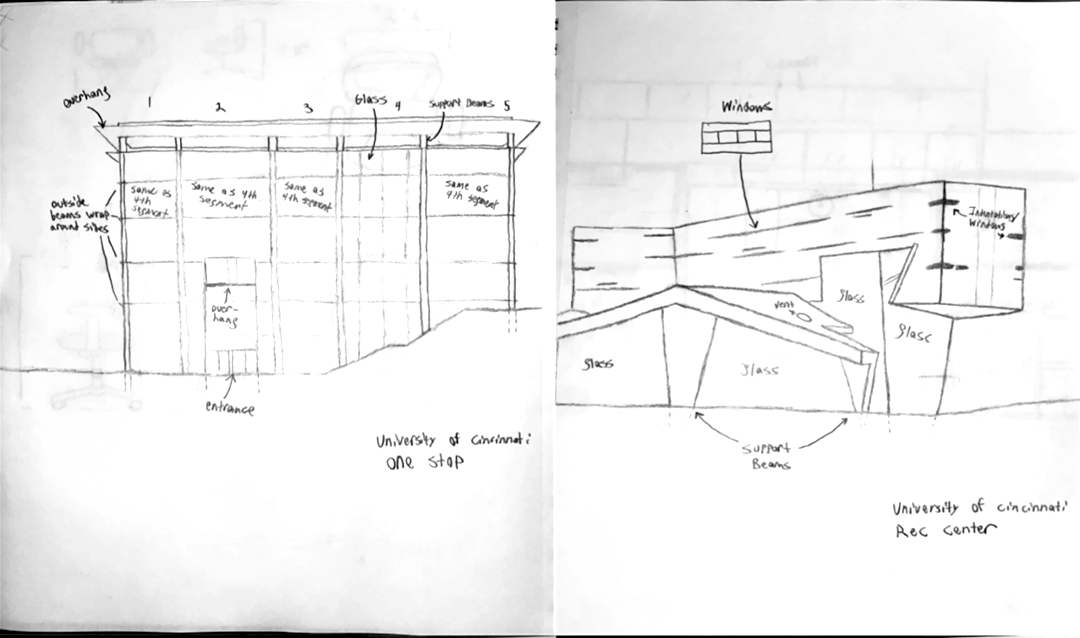 overhang
1
2
3
Glass
4
Support Beams
5
same as
4th
segment
same as 4th
segment
same as
4th segment
same as
4th segment
outside
beams wrap
around sides
over-
hang
entrance
University of cincinnati
One Stop
Windows
Indentations/
Windows
Vent
glass
glass
glass
glass
Support
Beams
University of cincinnati
Rec center